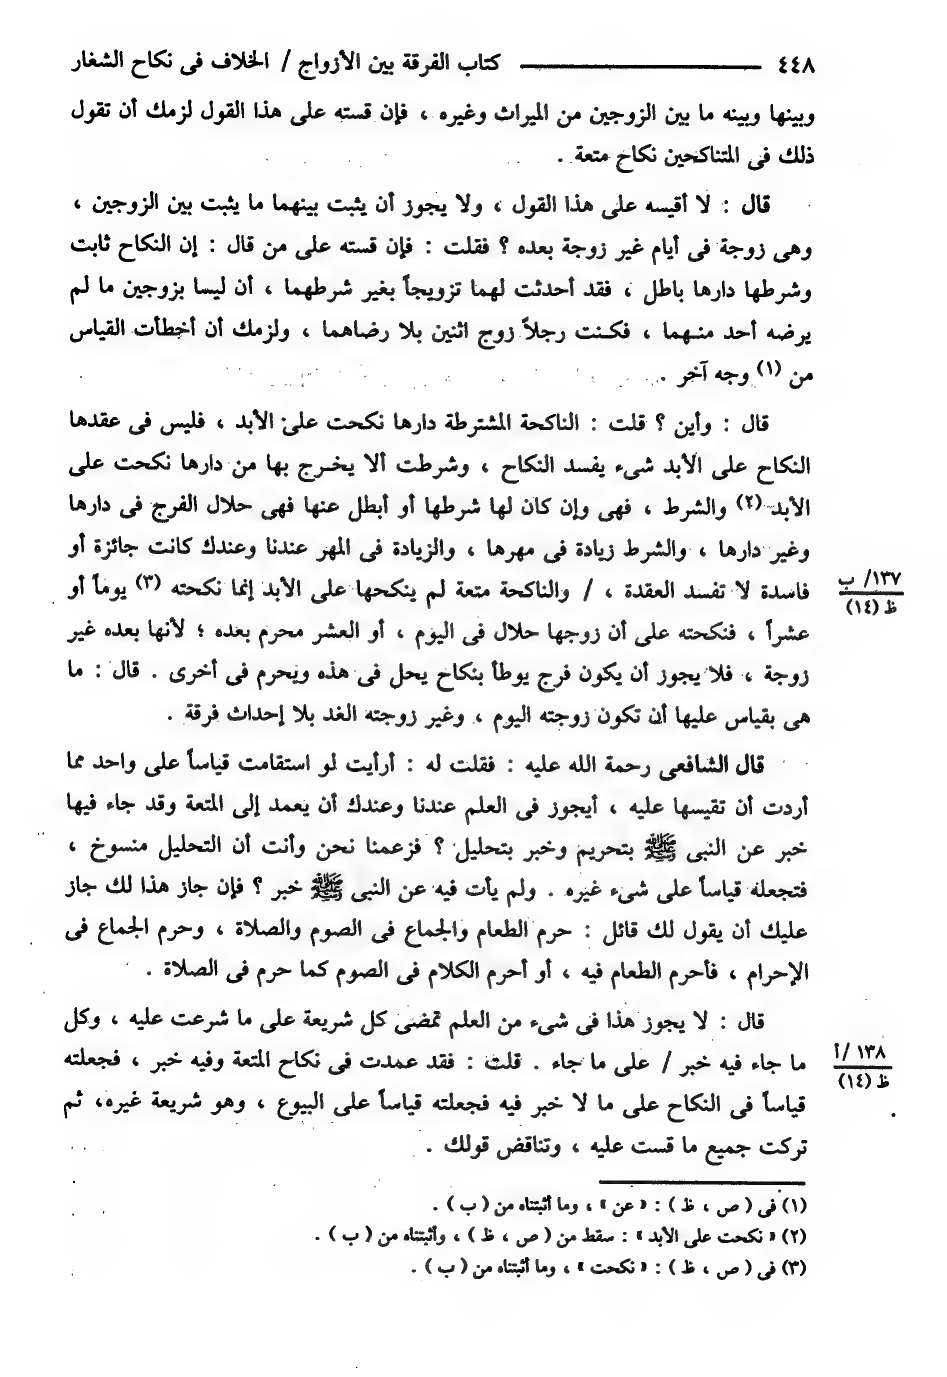 ٤٤٨ ــــــــــــــــ كتاب الفرقة بين الأزواج / الخلاف فى نكاح الشغار
وبينها وبينه ما بين الزوجين من الميراث وغيره ، فإن قسته على هذا القول لزمك أن تقول
ذلك فى المتناكحين نكاح متعة .
قال : لا أقيسه على هذا القول ، ولا يجوز أن يثبت بينهما ما يثبت بين الزوجين ،
وهى زوجة فى أيام غير زوجة بعده ؟ فقلت : فإن قسته على من قال : إن النكاح ثابت
وشرطها دارها باطل ، فقد أحدثت لهما تزويجاً بغير شرطهما ، أن ليسا بزوجين ما لم
يرضه أحد منهما ، فكنت رجلاً زوج اثنين بلا رضاهما ، ولزمك أن أخطأت القياس
من (١) وجه آخر .
قال : وأين ؟ قلت : الناكحة المشترطة دارها نكحت على الأبد ، فليس فى عقدها
النكاح على الأبد شىء يفسد النكاح ، وشرطت ألا يخرج بها من دارها نكحت على
الأبد (٢) والشرط ، فهى وإن كان لها شرطها أو أبطل عنها فهى حلال الفرج فى دارها
وغير دارها ، والشرط زيادة فى مهرها ، والزيادة فى المهر عندنا وعندك كانت جائزة أو
فاسدة لا تفسد العقدة ، / والناكحة متعة لم ينكحها على الأبد إنما نكحته (٣) يوماً أو
١٣٧/ ب
ظ (١٤)
عشراً ، فنكحته على أن زوجها حلال فى اليوم ، أو العشر محرم بعده ؛ لأنها بعده غير
زوجة ، فلا يجوز أن يكون فرج يوطأ بنكاح يحل فى هذه ويحرم فى أخرى . قال : ما
هى بقياس عليها أن تكون زوجته اليوم ، وغير زوجته الغد بلا إحداث فرقة .
قال الشافعى رحمة الله عليه : فقلت له : أرأيت لو استقامت قياساً على واحد مما
أردت أن تقيسها عليه ، أيجوز فى العلم عندنا وعندك أن يعمد إلى المتعة وقد جاء فيها
خبر عن النبى ﷺ بتحريم وخبر بتحليل ؟ فزعمنا نحن وأنت أن التحليل منسوخ ،
فتجعله قياساً على شىء غيره . ولم يأت فيه عن النبى ﷺ خبر ؟ فإن جاز هذا لك جاز
عليك أن يقول لك قائل : حرم الطعام والجماع فى الصوم والصلاة ، وحرم الجماع فى
الإحرام ، فأحرم الطعام فيه ، أو أحرم الكلام فى الصوم كما حرم فى الصلاة .
قال : لا يجوز هذا فى شىء من العلم تمضى كل شريعة على ما شرعت عليه ، وكل
ما جاء فيه خبر / على ما جاء . قلت : فقد عمدت فى نكاح المتعة وفيه خبر ، فجعلته
١٣٨ /أ
ظ (١٤)
قياساً فى النكاح على ما لا خبر فيه فجعلته قياساً على البيوع ، وهو شريعة غيره، ثم
تركت جميع ما قست عليه ، وتناقض قولك .
(١) فى ( ص ، ظ ) : « عن » ، وما أثبتناه من ( ب ) .
(٢) « نكحت على الأبد » : سقط من ( ص ، ظ ) ، وأثبتناه من ( ب ) .
(٣) فى ( ص ، ظ ) : « نكحت » ، وما أثبتناه من ( ب ) .